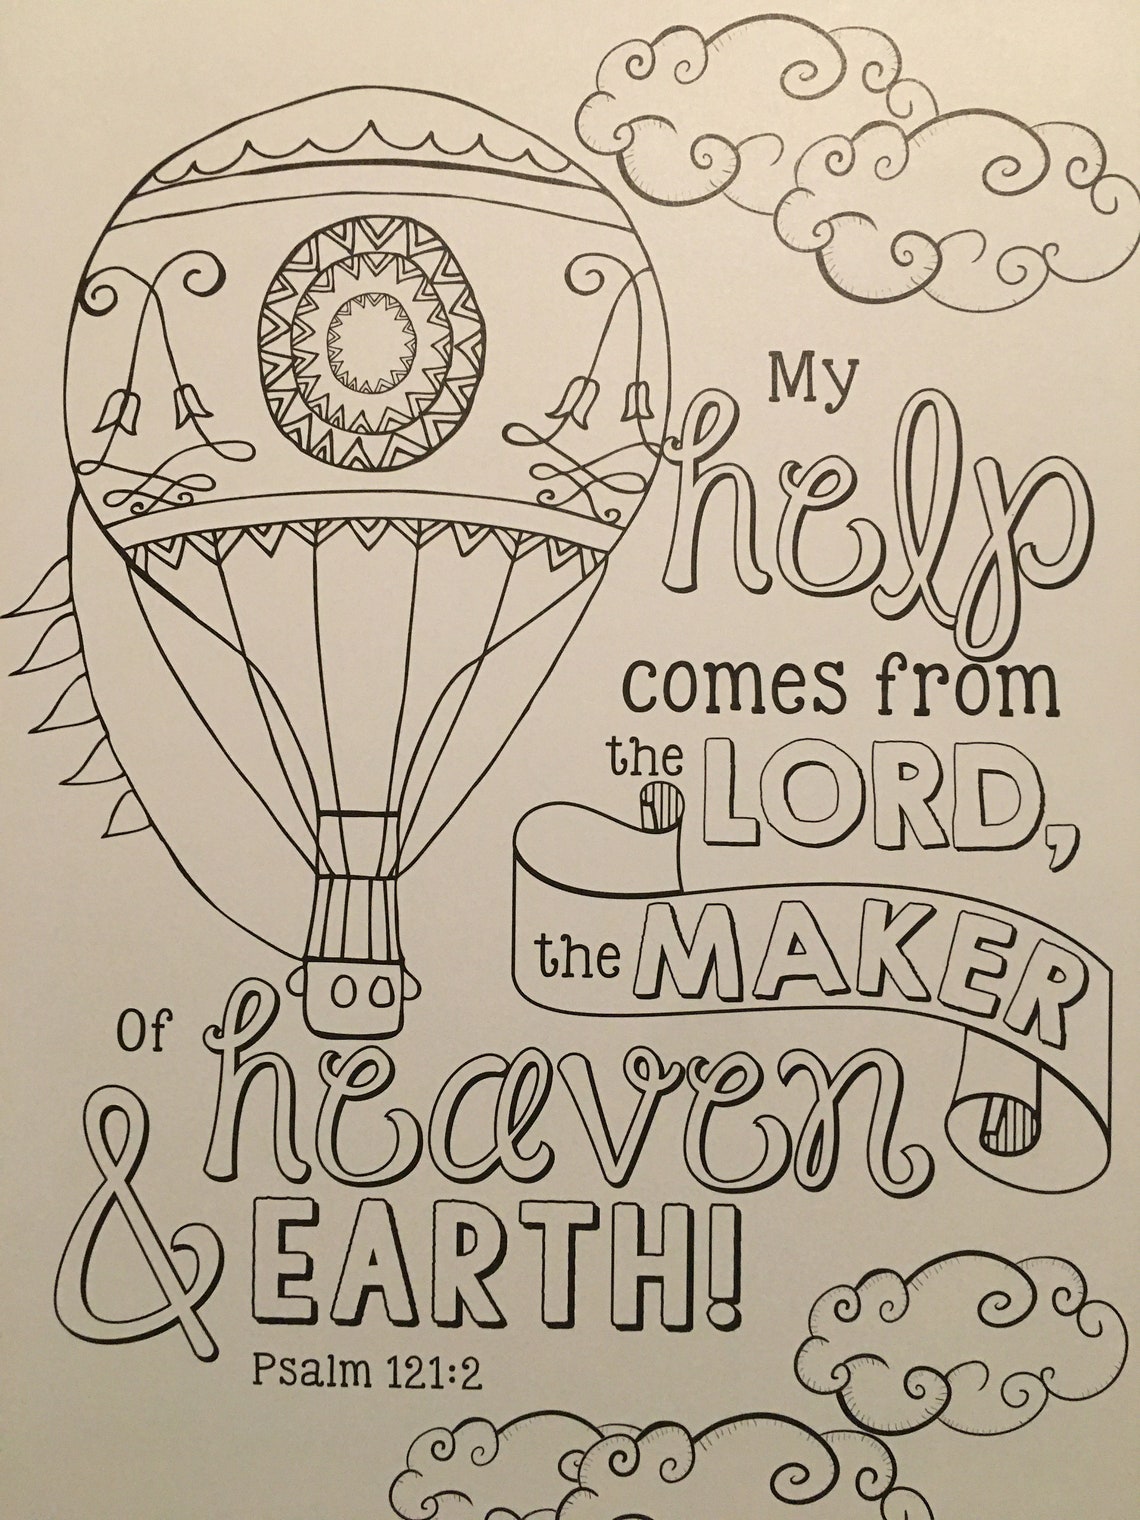 My
help
comes from
the LORD,
the MAKER
Of heaven
& EARTH!
Psalm 121:2